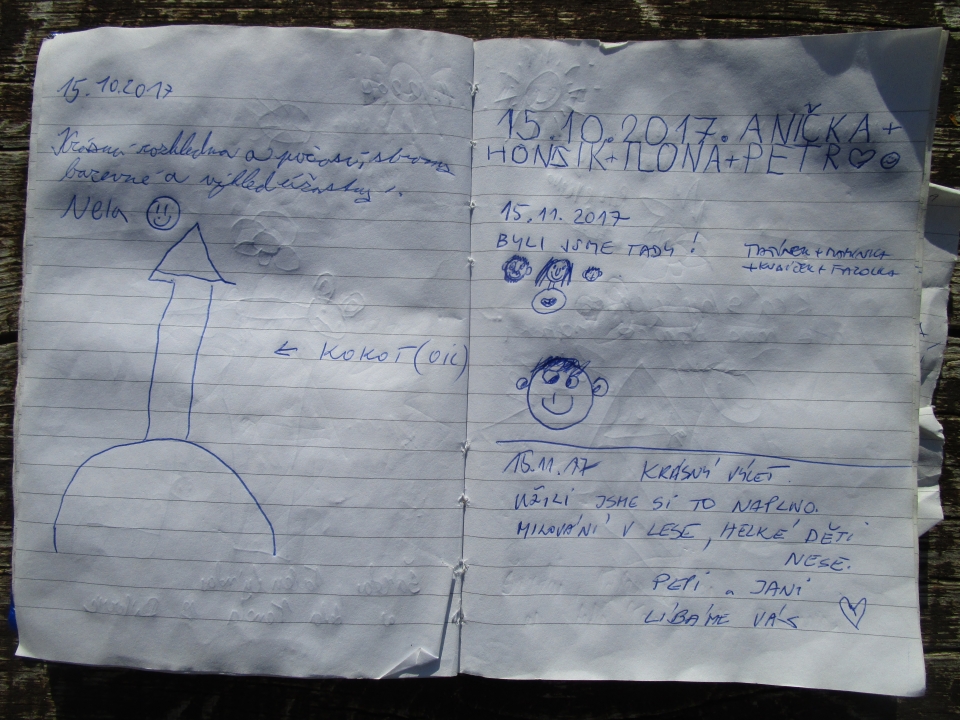 15.10.2017
Krásná rozhledna a počasí, stromy
barevné a výhled úžasný.
Nela
← KOKOT (OIC)
15.10.2017. ANIČKA +
HONZIK + ILONA + PETR
15.11.2017
BYLI JSME TADY!
TATÍNEK + MAMINKA
+ KUBÍČEK + FAZOLKA
15.11.17 KRÁSNÝ VÝLET.
UŽILI JSME SI TO NAPLNO.
MILOVÁNÍ V LESE, HELKÉ DĚTI
NESE.
PEPI a JANI
LÍBÁME VÁS